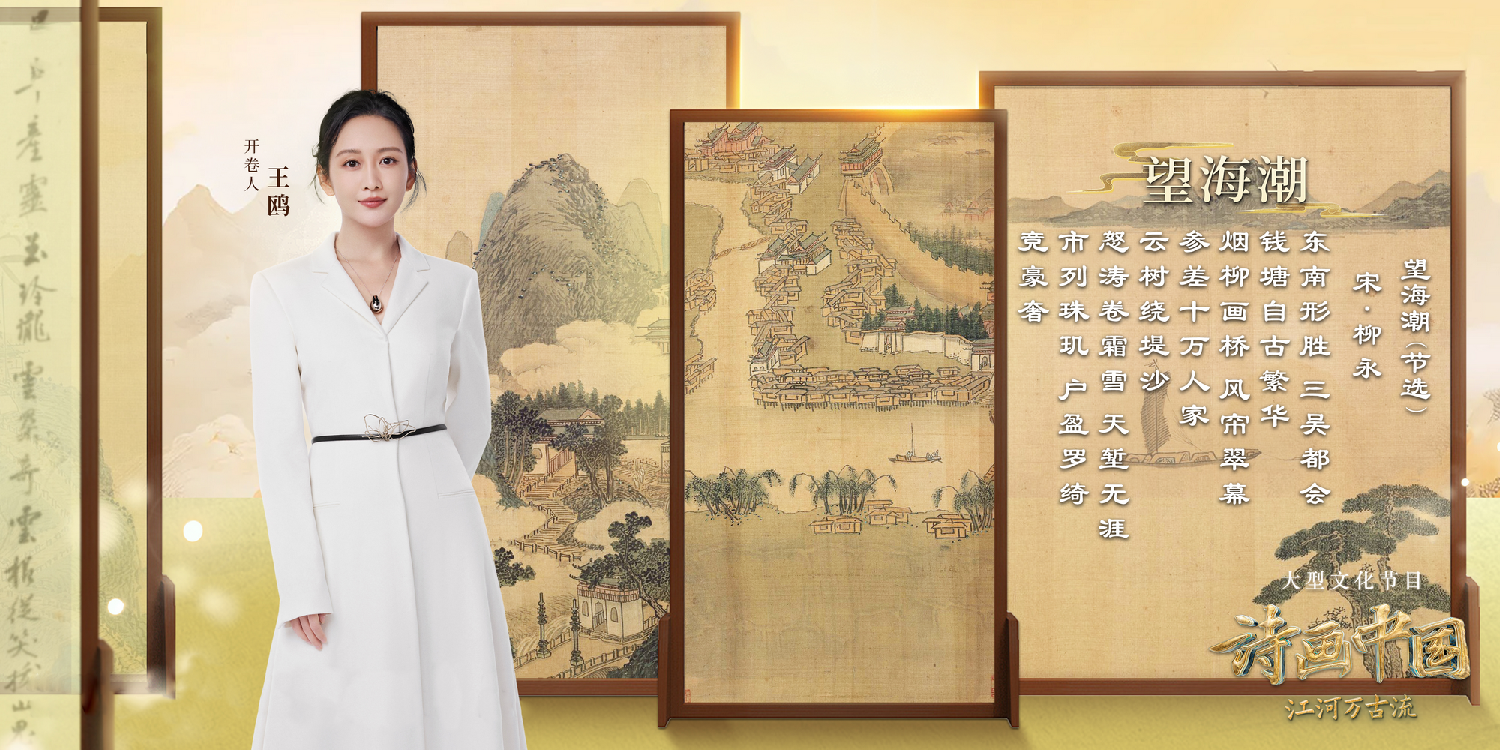 开卷人
王鸥
望海潮
望海潮（节选）
宋·柳永
东南形胜 三吴都会
钱塘自古繁华
烟柳画桥 风帘翠幕
参差十万人家
云树绕堤沙
怒涛卷霜雪 天堑无涯
市列珠玑 户盈罗绮
竞豪奢
大型文化节目
诗画中国
江河万古流